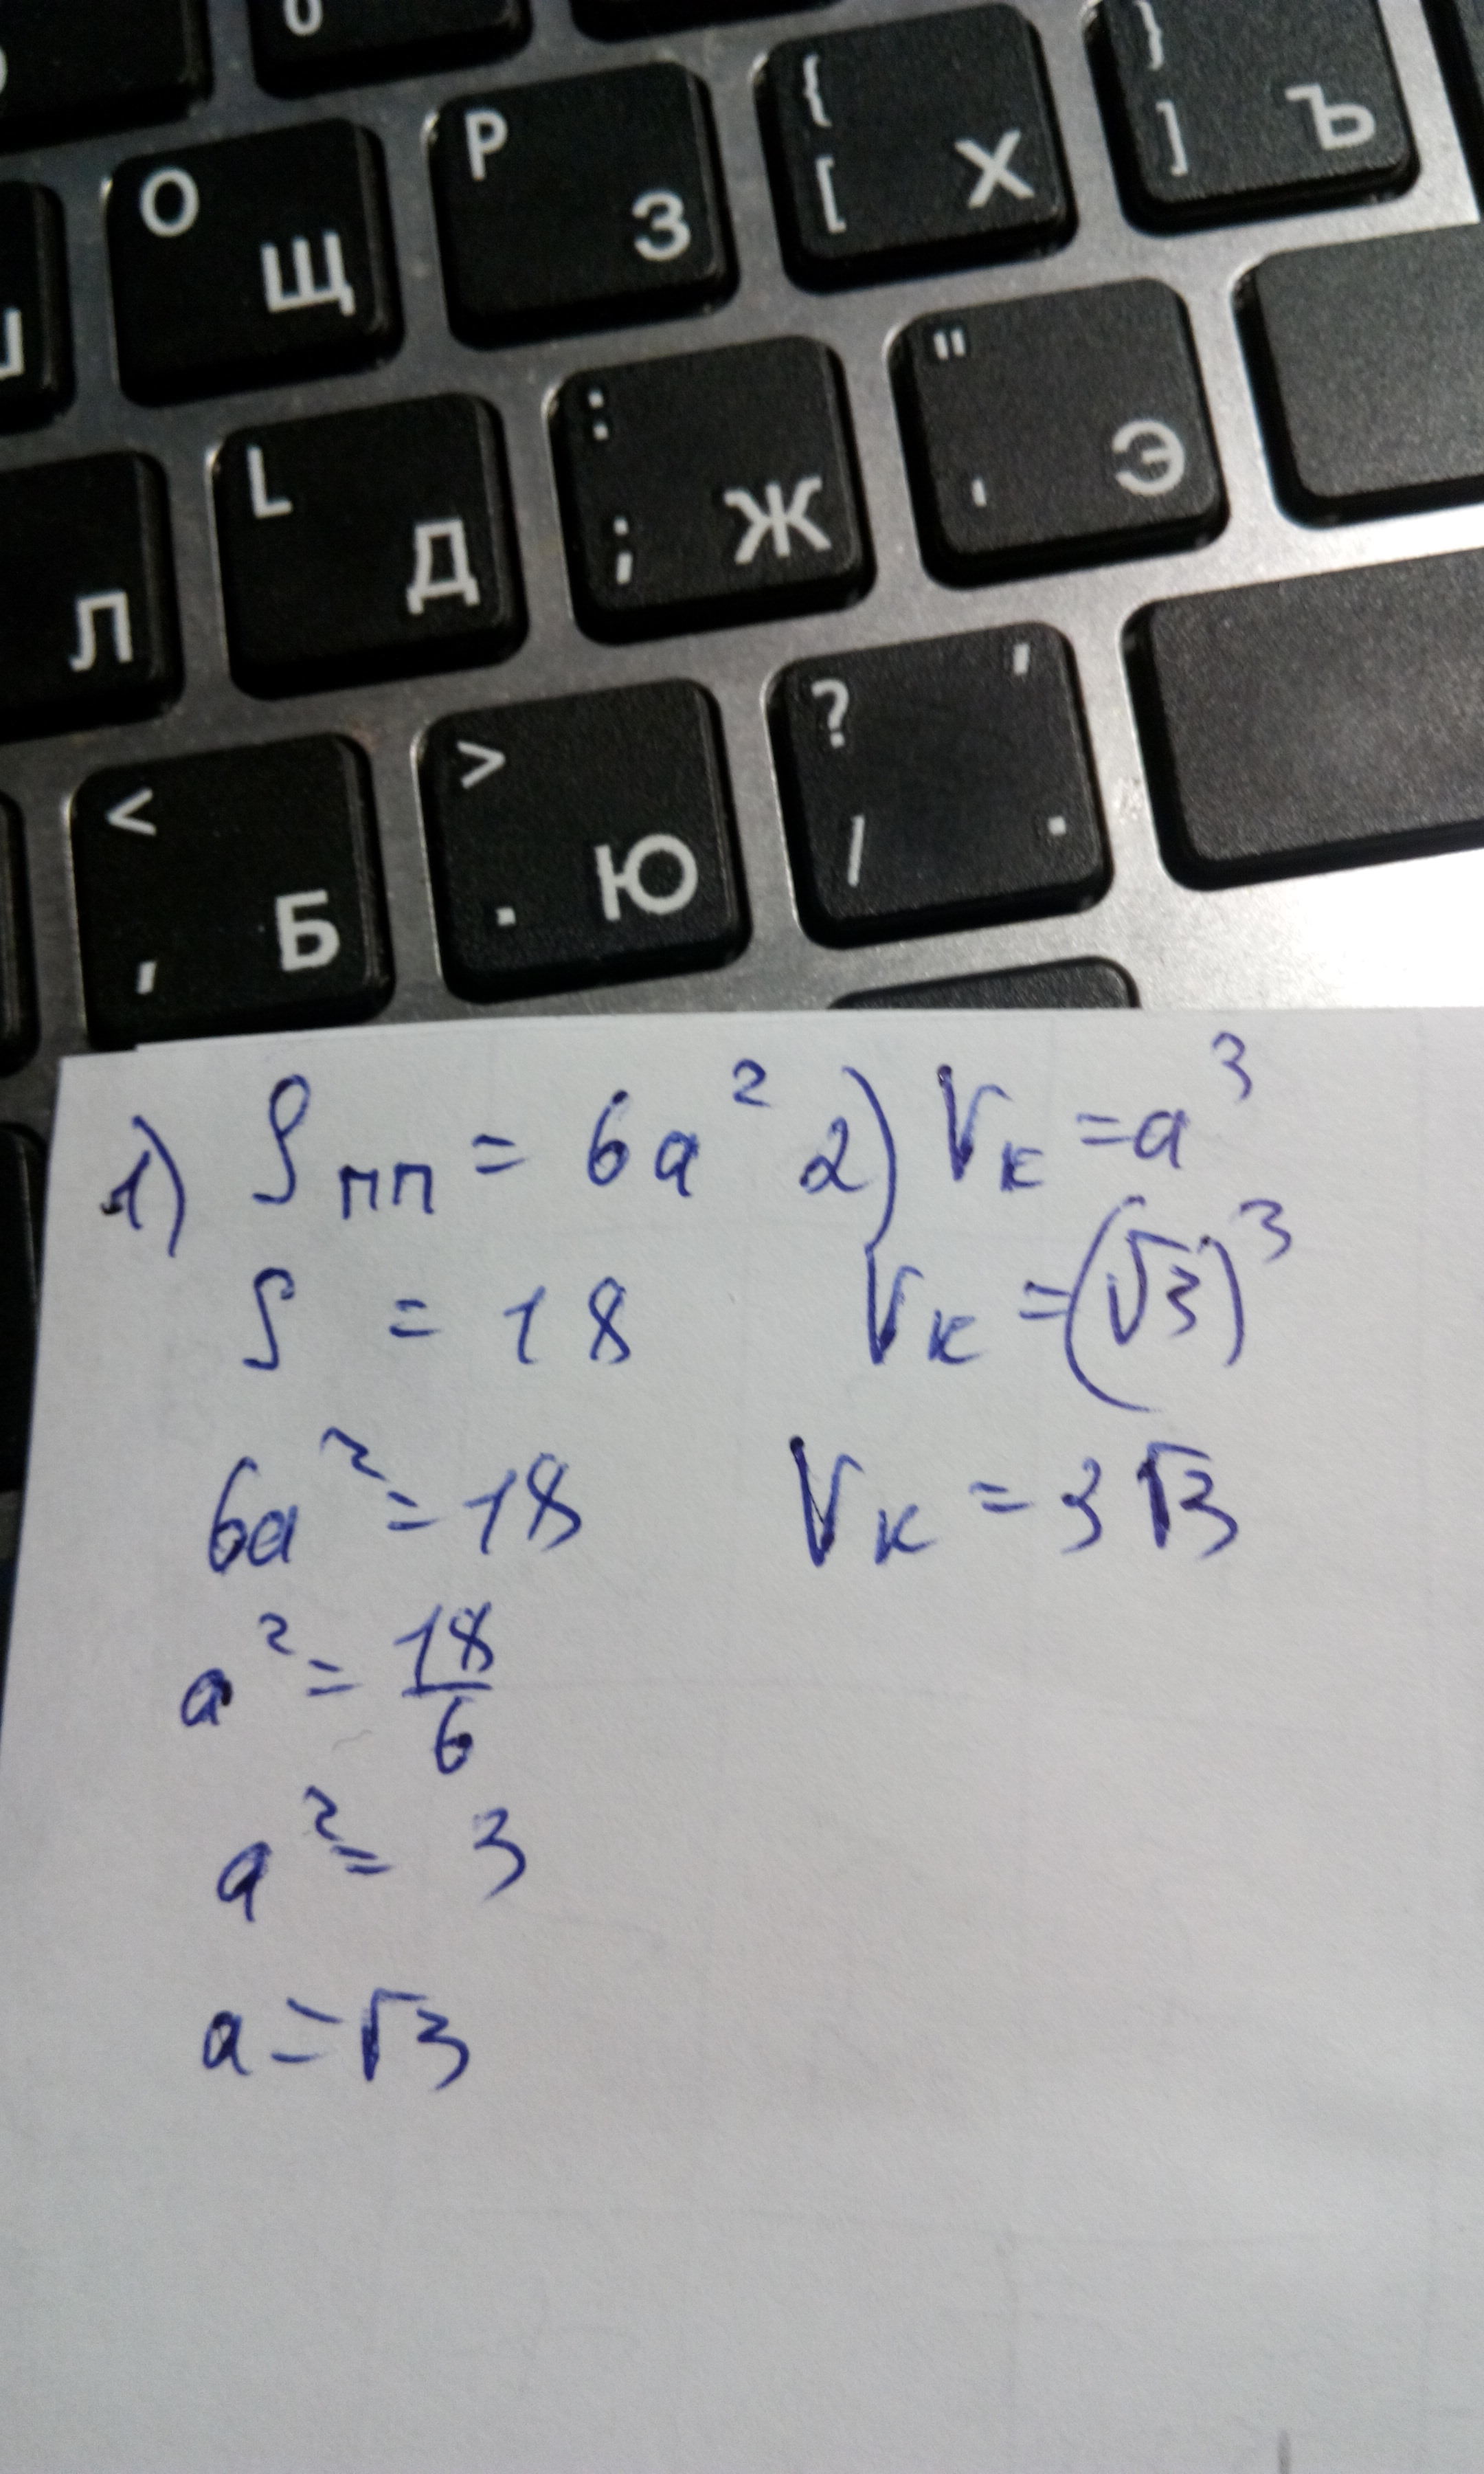 0
O Щ
P З
{ [ Х
} ] Ъ
Л
L Д
: ; Ж
" ' Э
< , Б
> . Ю
? / , .
1) Sпп = 6a²
S = 18
6a² = 18
a² = 18/6
a² = 3
a = √3
2) Vк = a³
Vк = (√3)³
Vк = 3√3